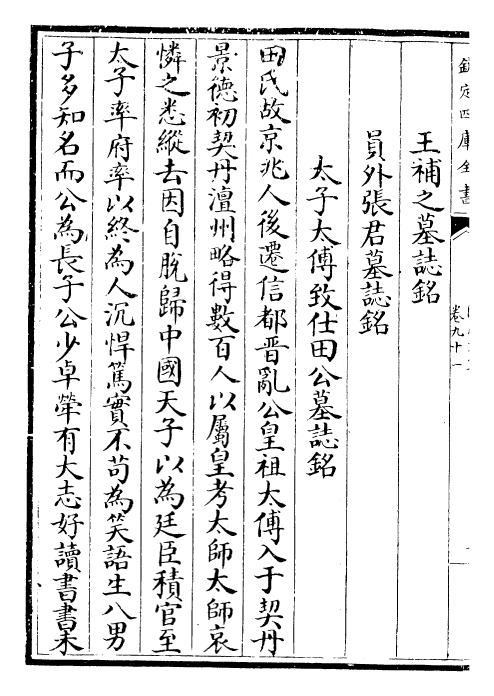 欽定四庫全書
卷九十一
王補之墓誌銘
員外張君墓誌銘
太子太傅致仕田公墓誌銘
田氏故京兆人後遷信都晉亂公皇祖太傅入于契丹
景德初契丹澶州略得數百人以屬皇考太師太師哀
憐之悉縱去因自脫歸中國天子以為廷臣積官至
太子率府率以終為人沉悍篤實不苟為笑語生八男
子多知名而公為長子公少卓犖有大志好讀書書未